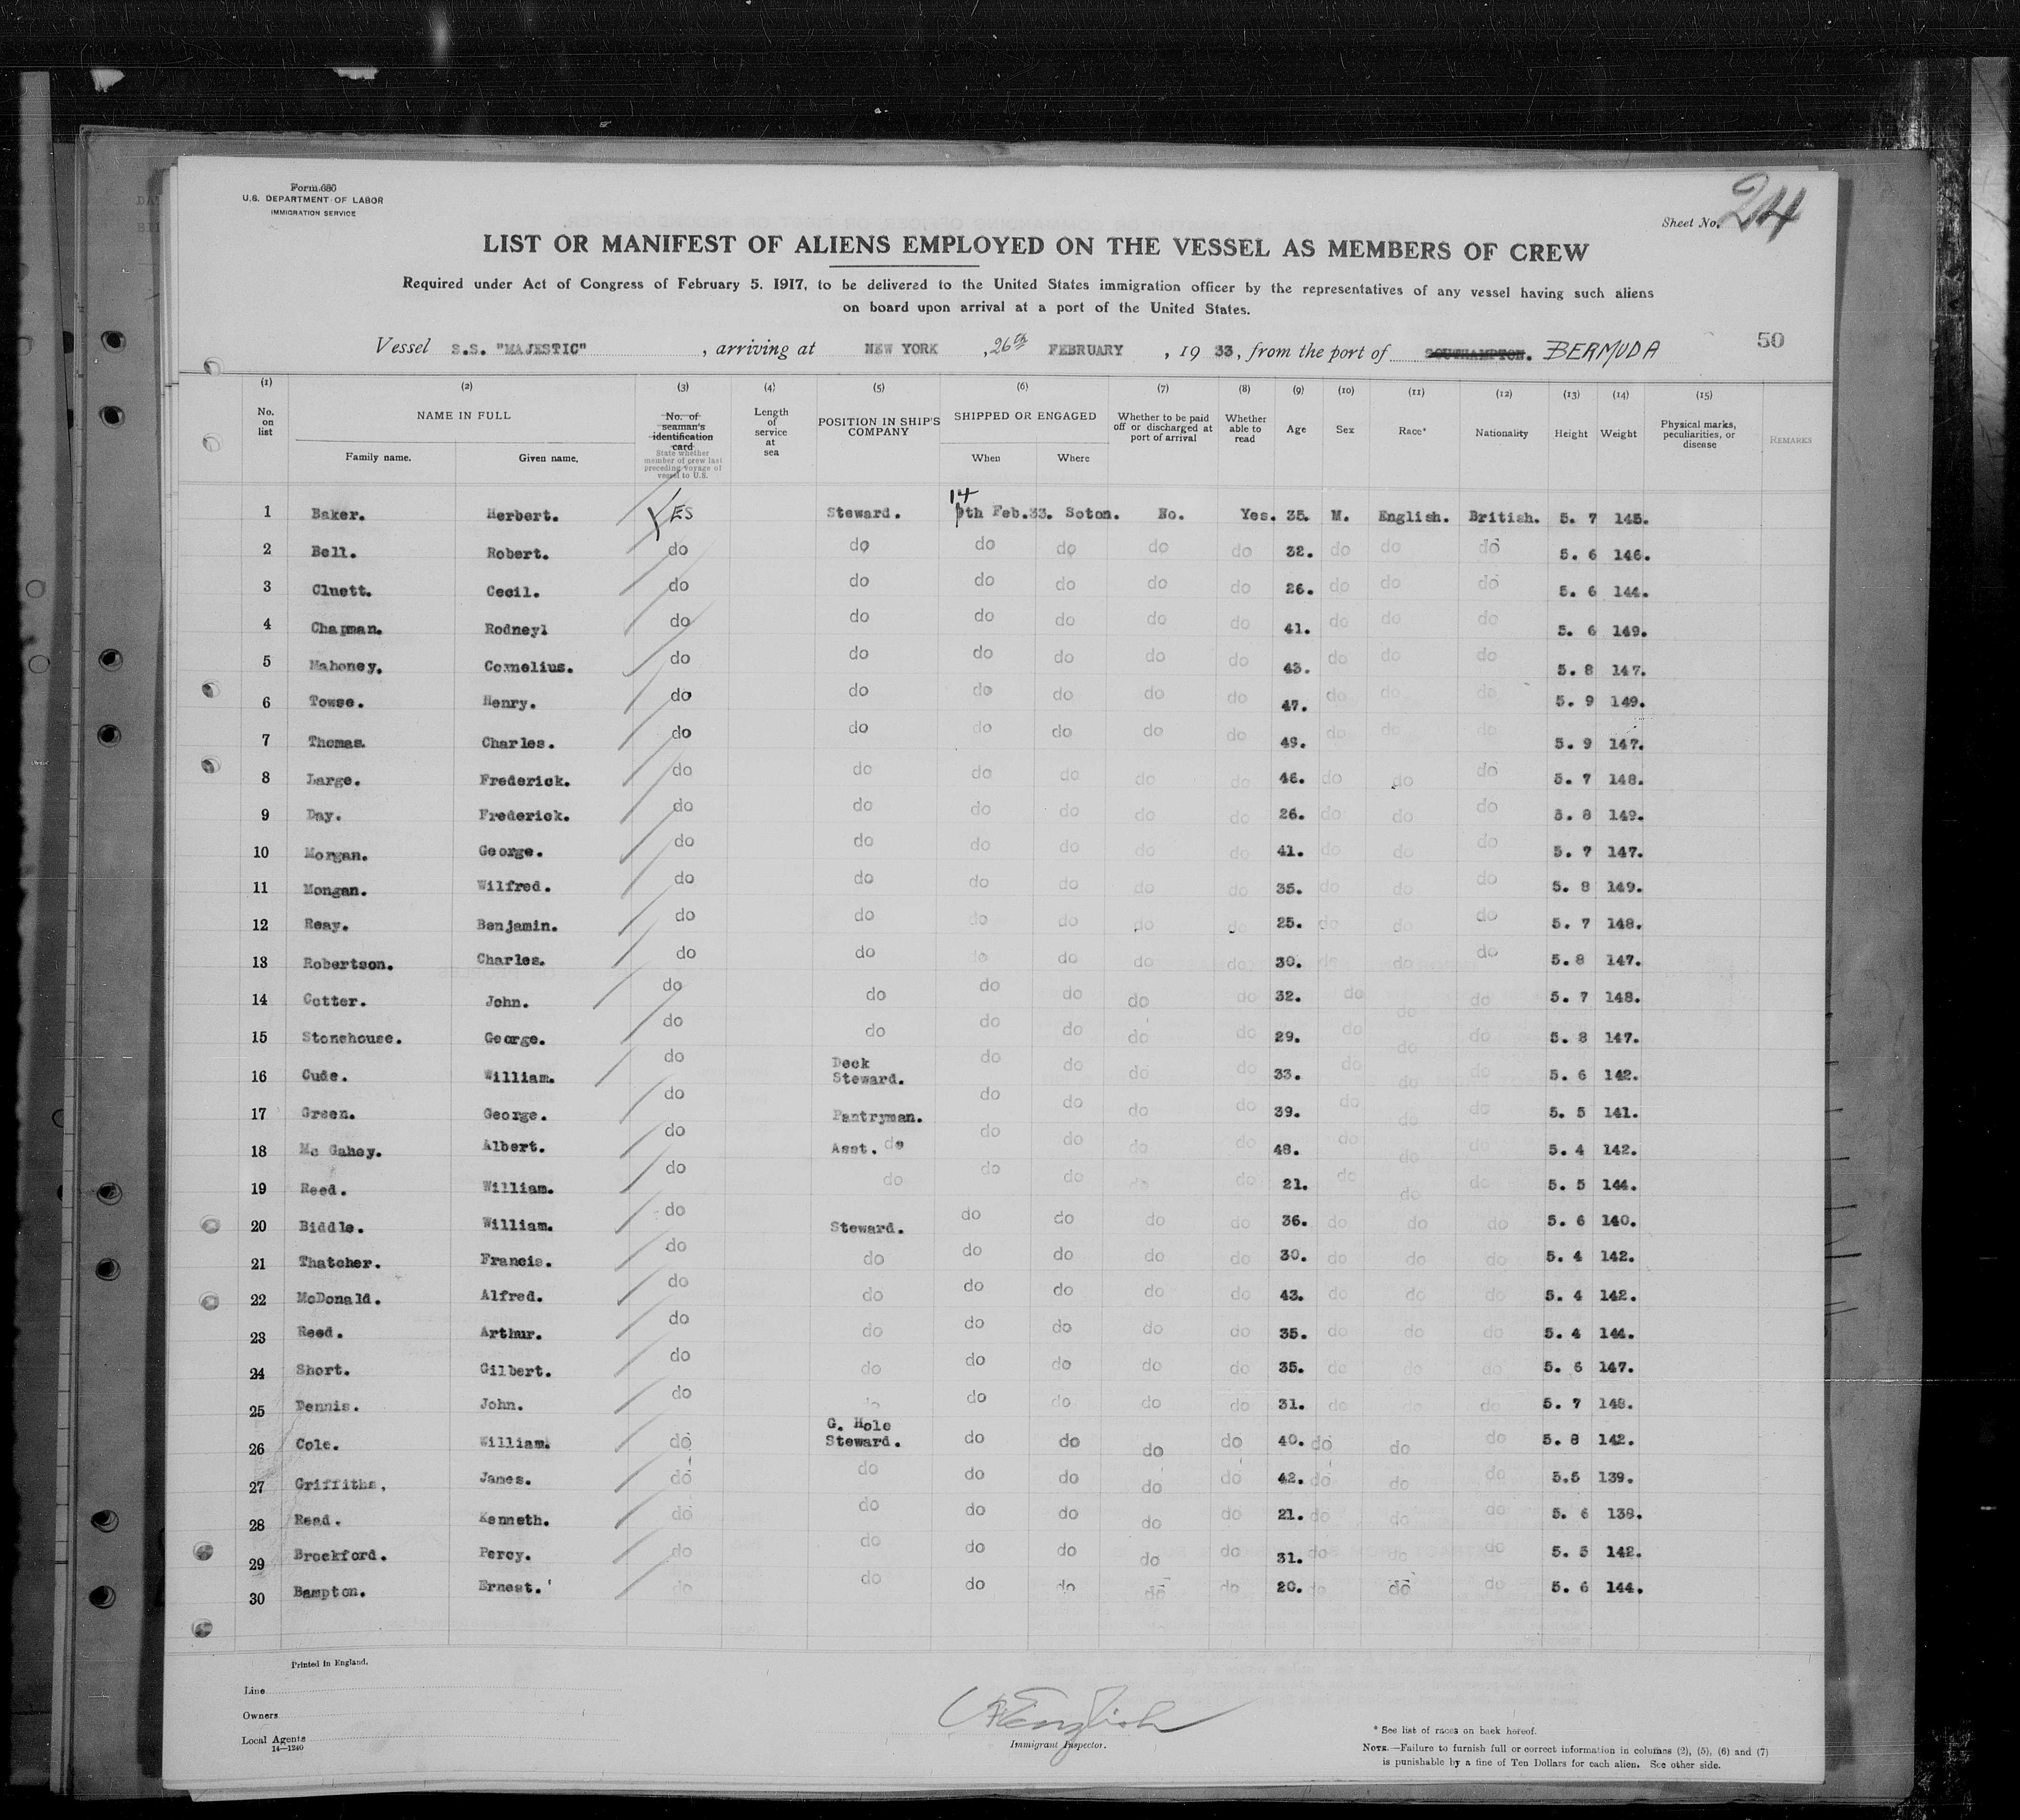 Form 680
U.S. DEPARTMENT OF LABOR
IMMIGRATION SERVICE
Sheet No. 24
LIST OR MANIFEST OF ALIENS EMPLOYED ON THE VESSEL AS MEMBERS OF CREW
Required under Act of Congress of February 5, 1917, to be delivered to the United States immigration officer by the representatives of any vessel having such aliens
on board upon arrival at a port of the United States.
Vessel S.S. "MAJESTIC", arriving at NEW YORK, 26th FEBRUARY, 1933, from the port of SOUTHAMPTON. BERMUDA
50
(1) (2) (3) (4) (5) (6) (7) (8) (9) (10) (11) (12) (13) (14) (15)
No. on list NAME IN FULL Family name. Given name. No. of seaman's identification card State whether member of crew last preceding voyage of vessel to U.S. Length of service at sea POSITION IN SHIP'S COMPANY SHIPPED OR ENGAGED When Where Whether to be paid off or discharged at port of arrival Whether able to read Age Sex Race* Nationality Height Weight Physical marks, peculiarities, or disease REMARKS
1 Baker. Herbert. YES Steward. 14 9th Feb.33. Soton. No. Yes. 35. M. English. British. 5. 7 145.
2 Bell. Robert. do do do do do do 32. do do do 5. 6 146.
3 Cluett. Cecil. do do do do do do 26. do do do 5. 6 144.
4 Chapman. Rodneyl do do do do do do 41. do do do 5. 6 149.
5 Mahoney. Cornelius. do do do do do do 43. do do do 5. 8 147.
6 Towse. Henry. do do do do do do 47. do do do 5. 9 149.
7 Thomas. Charles. do do do do do do 49. do do do 5. 9 147.
8 Large. Frederick. do do do do do do 46. do do do 5. 7 148.
9 Day. Frederick. do do do do do do 26. do do do 5. 8 149.
10 Morgan. George. do do do do do do 41. do do do 5. 7 147.
11 Mongan. Wilfred. do do do do do do 35. do do do 5. 8 149.
12 Reay. Benjamin. do do do do do do 25. do do do 5. 7 148.
13 Robertson. Charles. do do do do do do 30. do do do 5.8 147.
14 Cotter. John. do do do do do do 32. do do do 5. 7 148.
15 Stonehouse. George. do do do do do do 29. do do do 5. 8 147.
16 Cude. William. do Deck Steward. do do do do 33. do do do 5. 6 142.
17 Green. George. do Pantryman. do do do do 39. do do do 5. 5 141.
18 Mc Gahey. Albert. do Asst. do do do do do 48. do do do 5. 4 142.
19 Reed. William. do do do do do do 21. do do do 5. 5 144.
20 Biddle. William. do Steward. do do do do 36. do do do 5. 6 140.
21 Thatcher. Francis. do do do do do do 30. do do do 5. 4 142.
22 McDonald. Alfred. do do do do do do 43. do do do 5. 4 142.
23 Reed. Arthur. do do do do do do 35. do do do 5. 4 144.
24 Short. Gilbert. do do do do do do 35. do do do 5. 6 147.
25 Dennis. John. do do do do do 31. do do do 5. 7 148.
26 Cole. William. do G. Hole Steward. do do do do 40. do do do 5. 8 142.
27 Griffiths. James. do do do do do do 42. do do do 5.5 139.
28 Read. Kenneth. do do do do do do 21. do do do 5. 6 138.
29 Brockford. Percy. do do do do do do 31. do do do 5. 5 142.
30 Bampton. Ernest. do do do do do do 20. do do do 5. 6 144.
Printed in England.
Line
Owners
Local Agents
14—1240
Immigrant Inspector.
* See list of races on back hereof.
NOTE.—Failure to furnish full or correct information in columns (2), (5), (6) and (7)
is punishable by a fine of Ten Dollars for each alien. See other side.